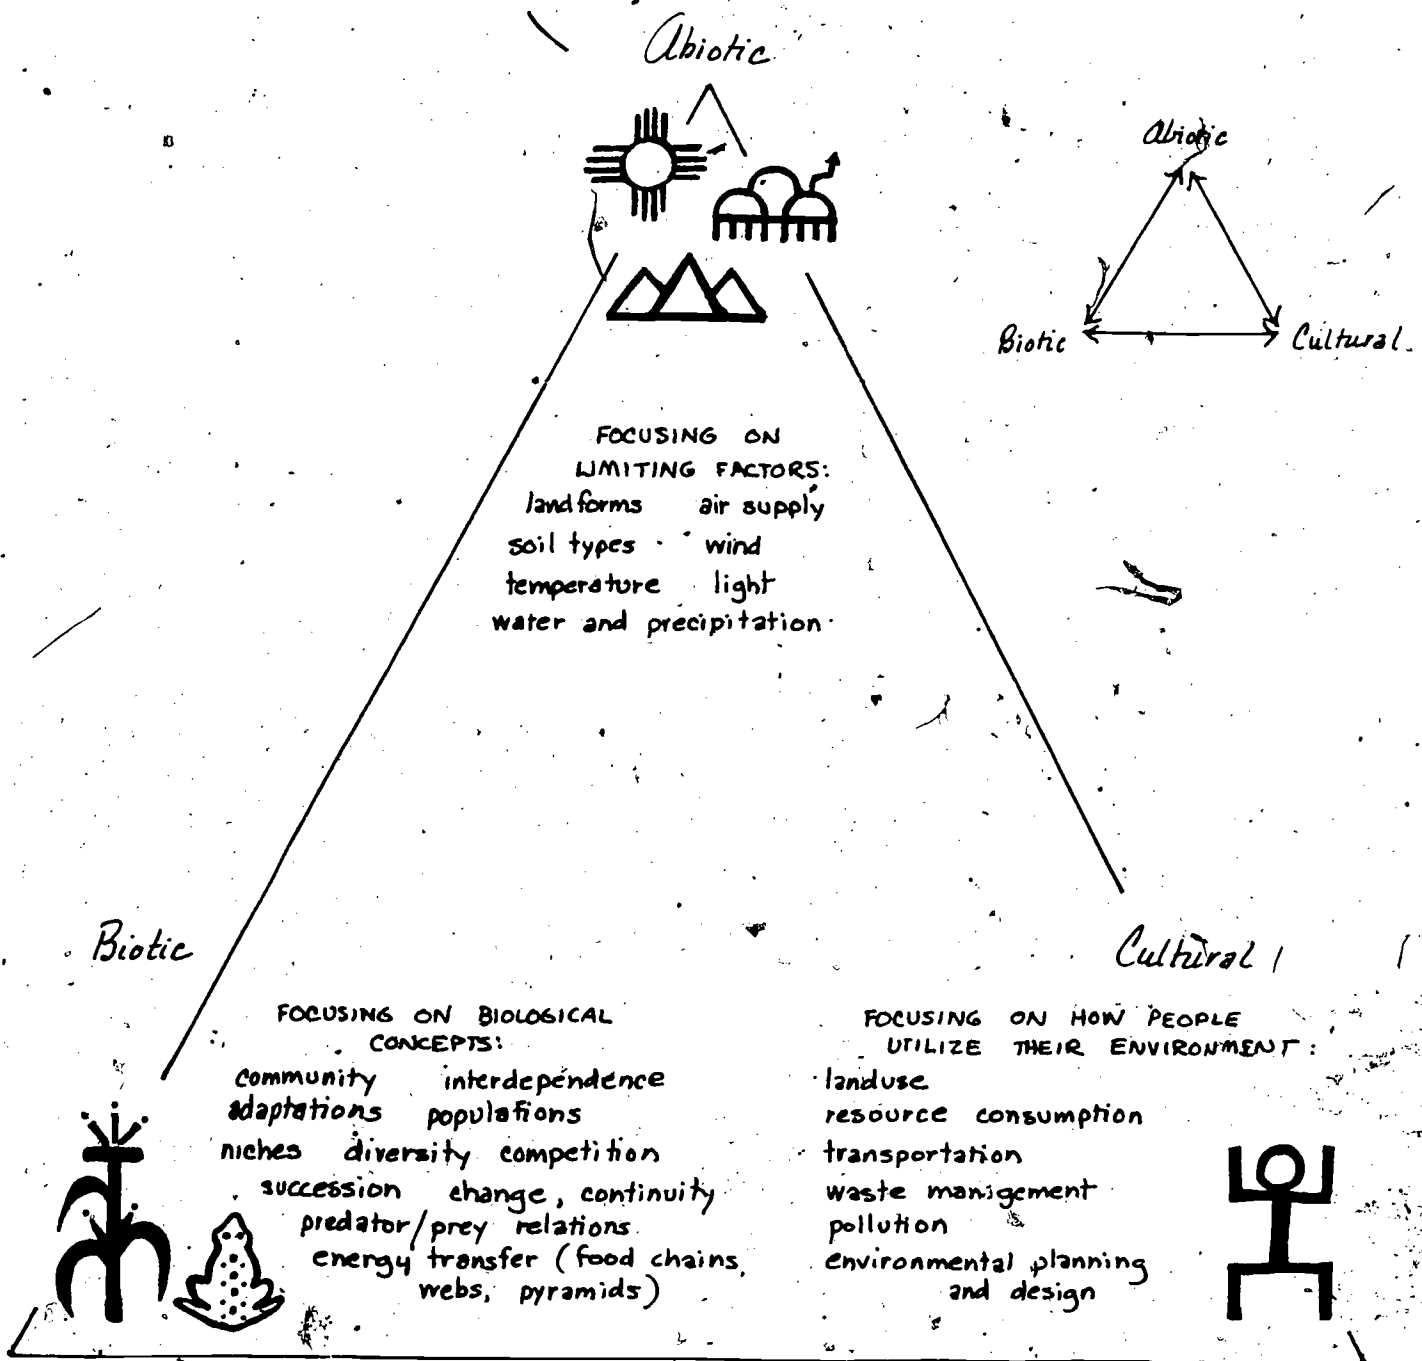 Abiotic
Abiotic
Biotic
Cultural
FOCUSING ON
LIMITING FACTORS:
landforms air supply
soil types wind
temperature light
water and precipitation
Biotic
Cultural
FOCUSING ON BIOLOGICAL
CONCEPTS:
community interdependence
adaptations populations
niches diversity competition
succession change, continuity
predator/prey relations
energy transfer (food chains,
webs, pyramids)
FOCUSING ON HOW PEOPLE
UTILIZE THEIR ENVIRONMENT:
landuse
resource consumption
transportation
waste manigement
pollution
environmental planning
and design